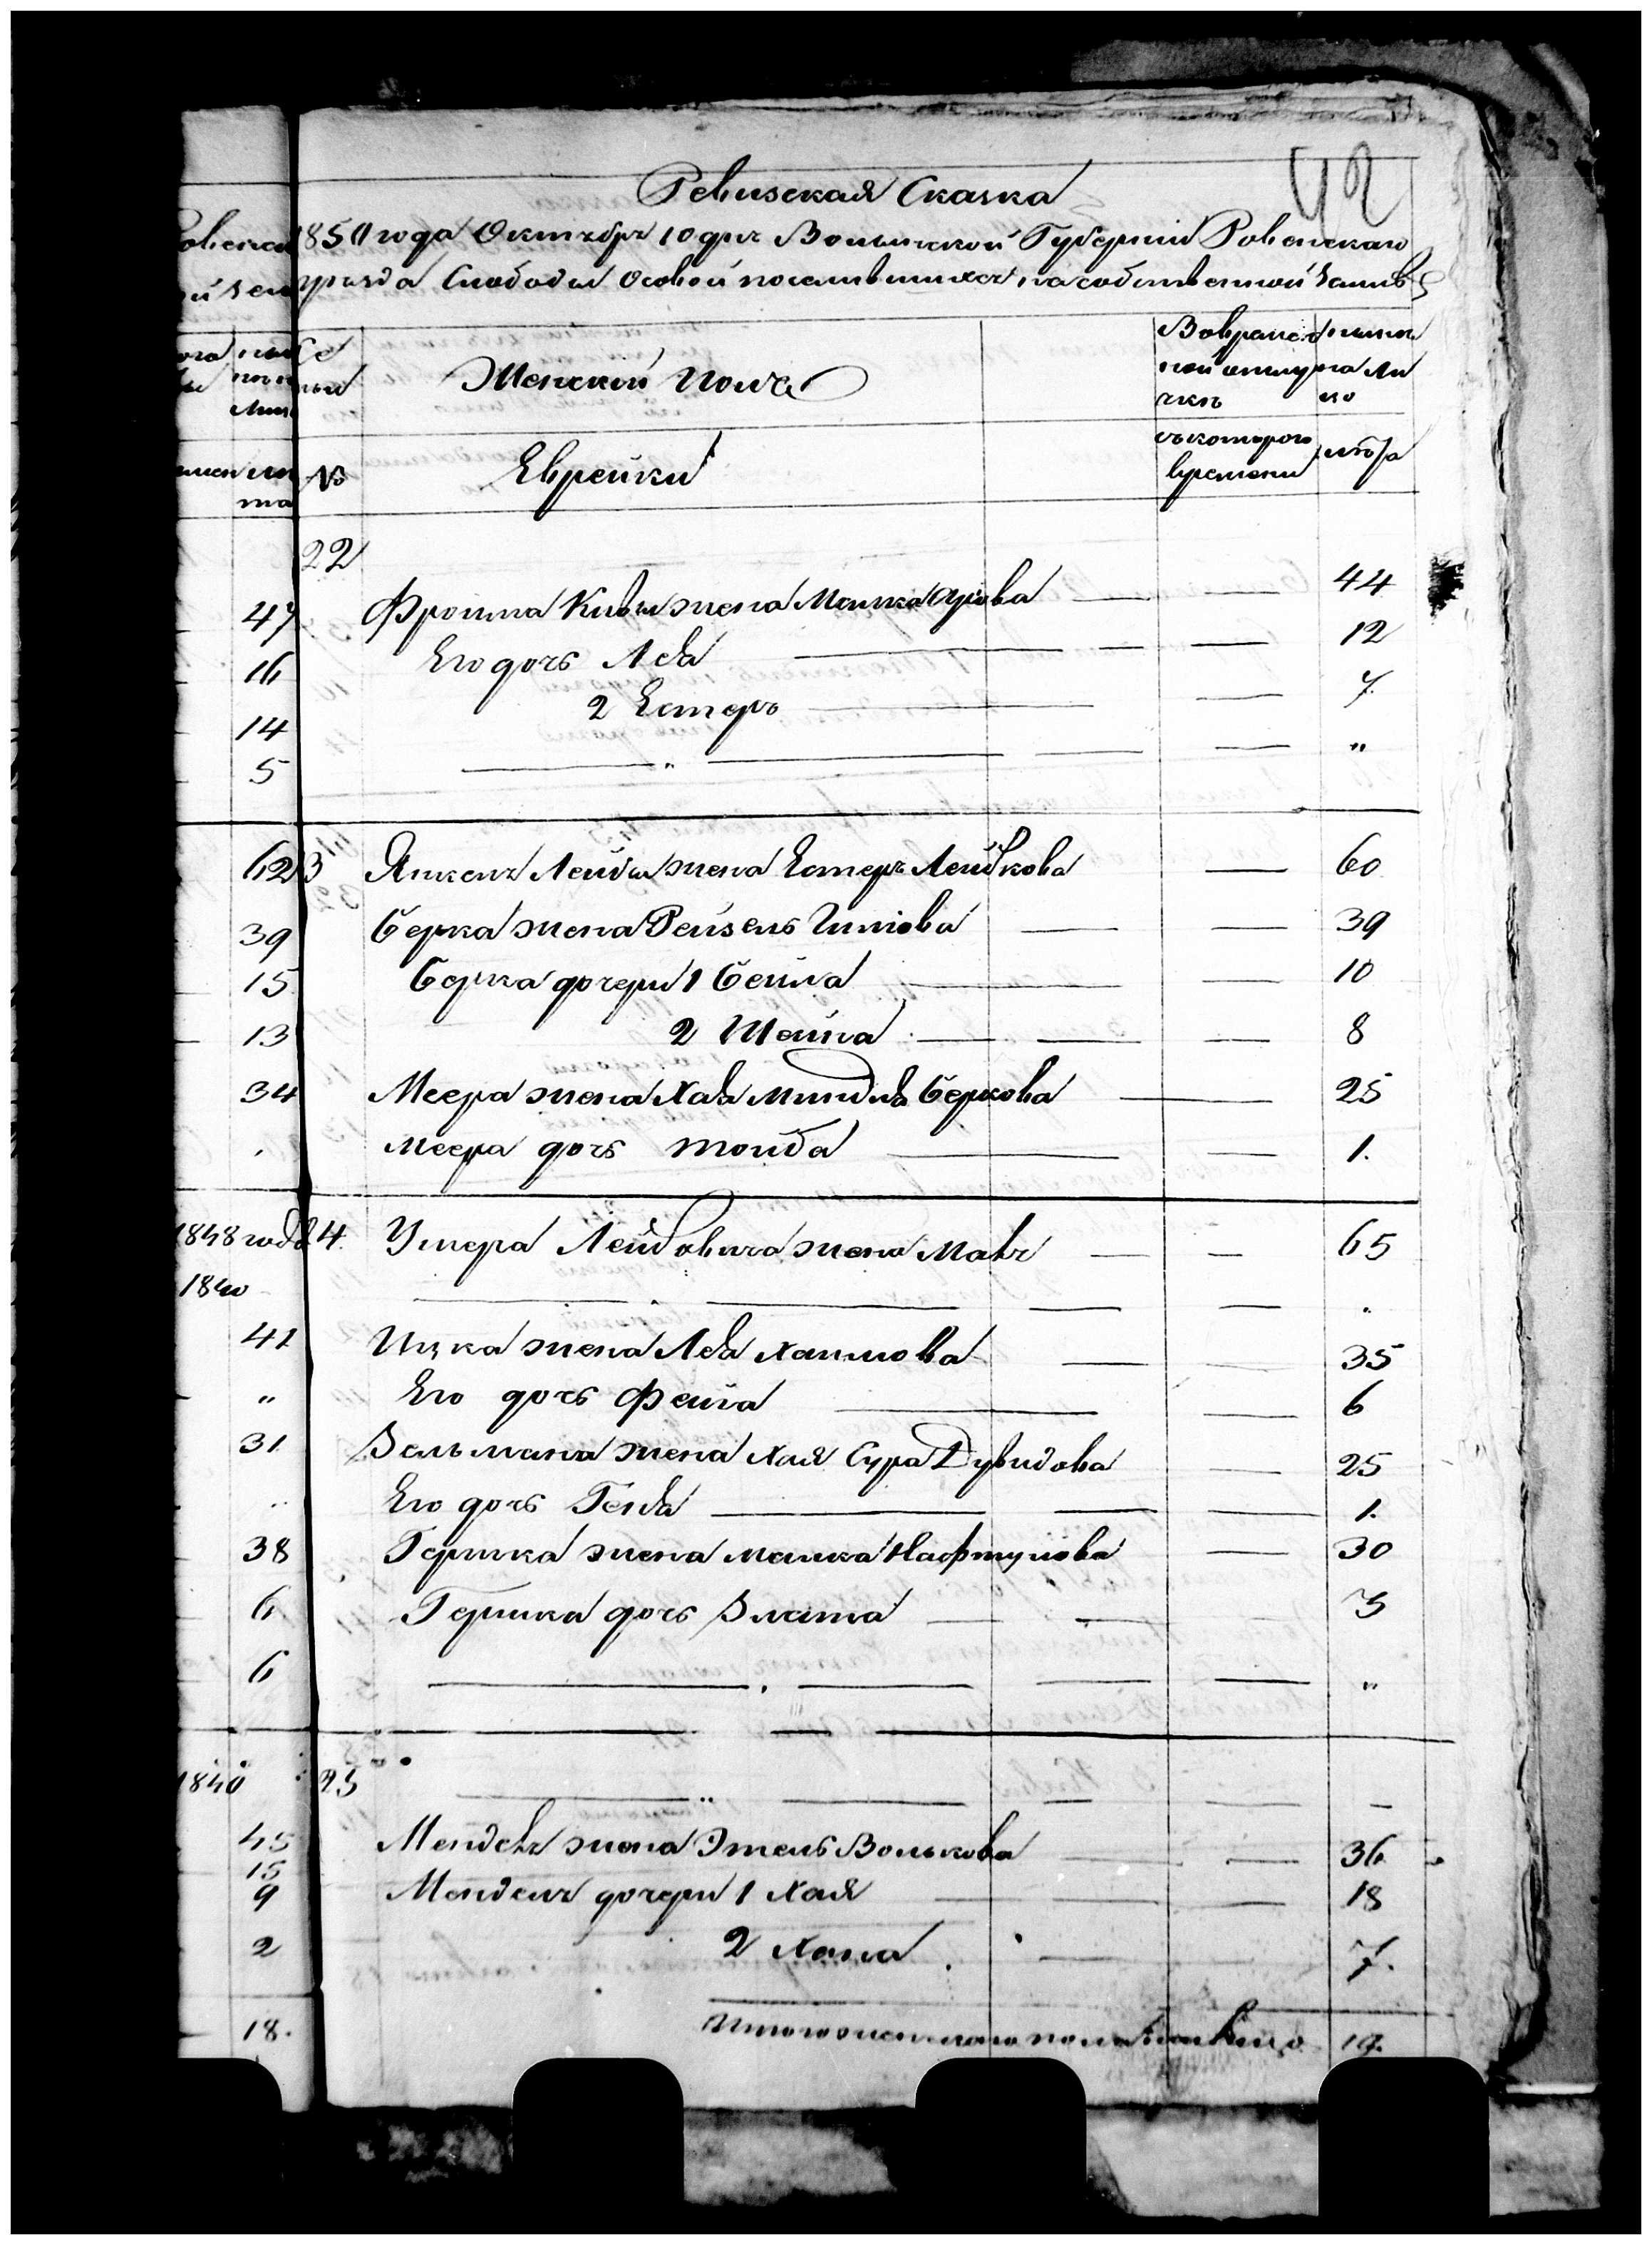 42
Ревизская Сказка
1850 года Октября 10 дня Волынской Губернии Ровенского
уезда Слободы Осовой поселившихся на собственной земле
Женскій полъ
Во временной отлучкѣ
нынѣ на лицо
№
Еврейки
съ которого времени
лѣта
22
47 Фроима Кивы жена Малка 44
16 Его дочь Лея 12
14 2 Естеръ 7
5 "
62 3 Янкеля Лейбы жена Естеръ Лейбкова 60
39 Берка жена Рейзель 39
15 Берка дочери 1 Бейла 10
13 2 Шейна 8
34 Меера жена Хая Миндля Беркова 25
Меера дочь Тойба 1.
1848 года 4. Умера Лейбовича жена 65
1840
41 Ицка жена Лея Хаимова 35
" Его дочь Фейга 6
31 Зельмана жена Хая Сура Дувидова 25
Его дочь Геня 1.
38 Гершка жена Малка Нафтулова 30
6 Гершка дочь Злата 3
6 "
1840 25
45 Менделя жена Этель Волькова 36
15
9 Менделя дочери 1 Хая 18
2 2 Хана 7.
18. Итого женского пола на лицо 19.